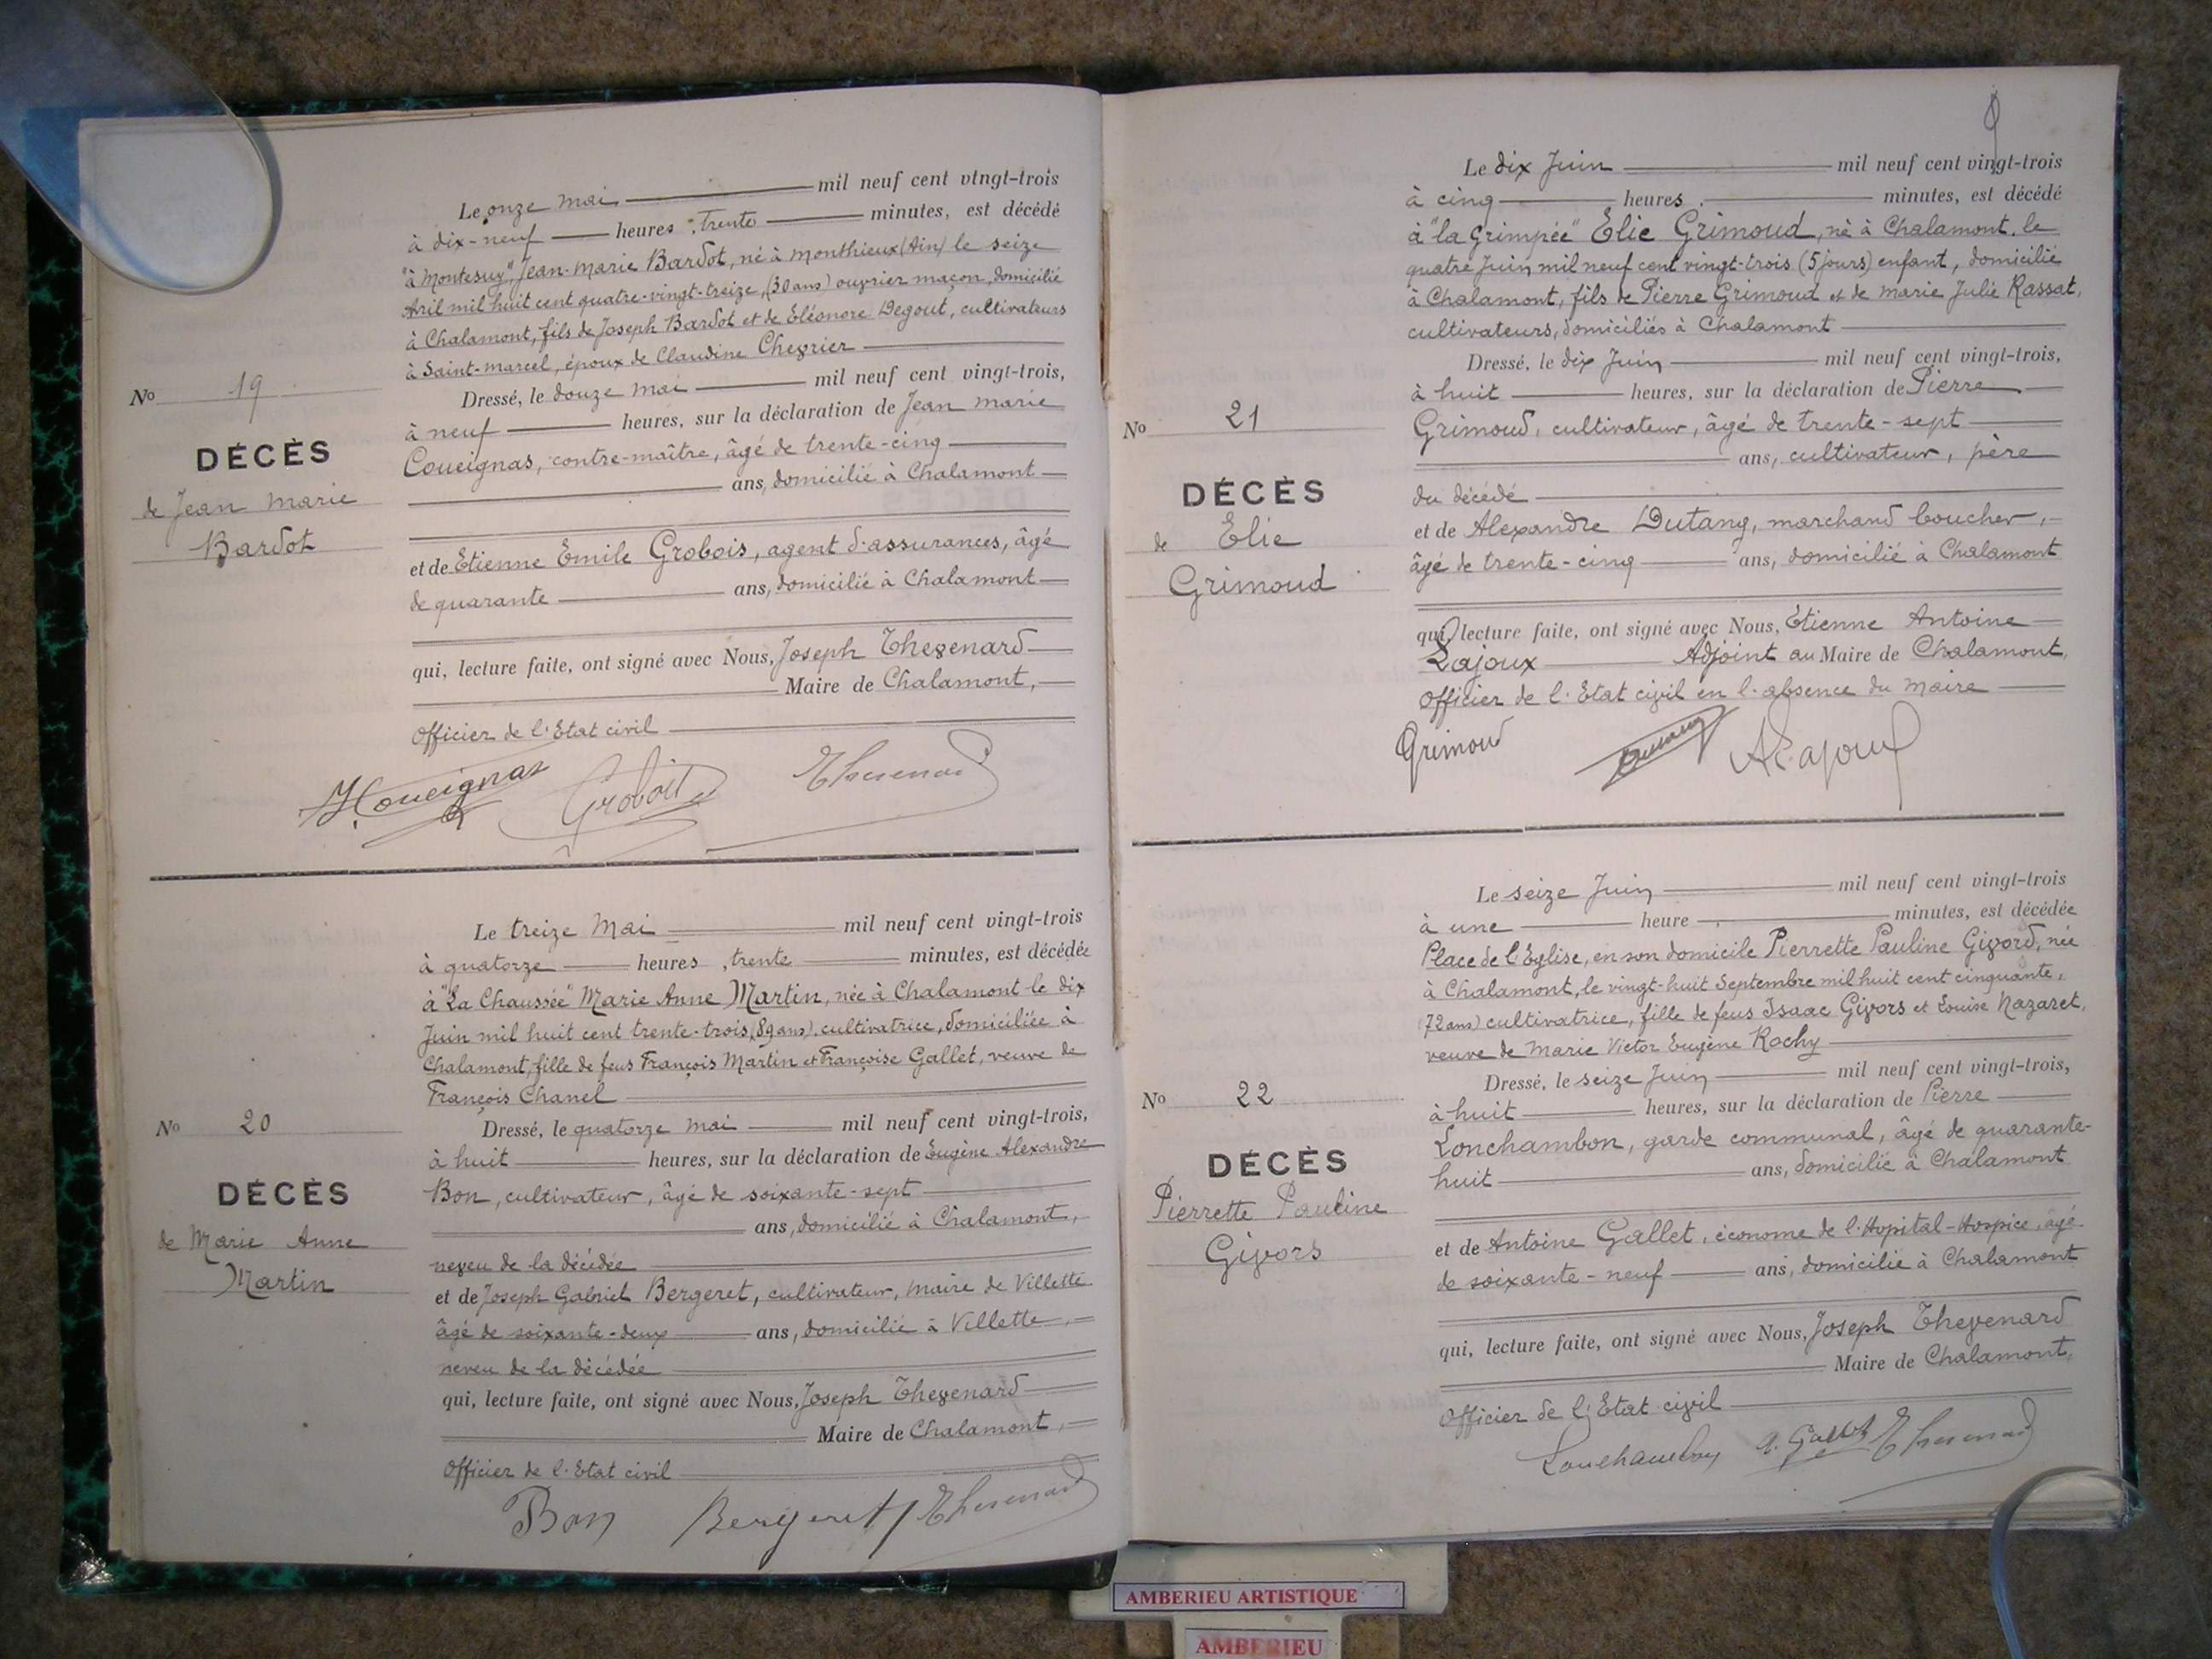 Le onze mai mil neuf cent vingt-trois
à dix-neuf heures, trente minutes, est décédé
"à Montesuy" Jean-Marie Bardot, né à Monthieux (Ain) le seize
Avril mil huit cent quatre-vingt-treize, (30 ans) ouvrier maçon, domicilié
à Chalamont, fils de Joseph Bardot et de Eléonore Degout, cultivateurs
à Saint-Marcel, époux de Claudine Chevrier
Dressé, le douze mai mil neuf cent vingt-trois,
à neuf heures, sur la déclaration de Jean Marie
Coueignas, contre-maître, âgé de trente-cinq
ans, domicilié à Chalamont
et de Etienne Emile Grobois, agent d'assurances, âgé
de quarante ans, domicilié à Chalamont
qui, lecture faite, ont signé avec Nous, Joseph Thevenard
Maire de Chalamont,
Officier de l'Etat civil
Coueignas Grobois Thevenard
No 19
DÉCÈS
de Jean Marie
Bardot
Le treize Mai mil neuf cent vingt-trois
à quatorze heures, trente minutes, est décédée
à "La Chaussée" Marie Anne Martin, née à Chalamont le dix
Juin mil huit cent trente-trois, (89 ans), cultivatrice, domiciliée à
Chalamont, fille de feus François Martin et Françoise Gallet, veuve de
François Chanel
Dressé, le quatorze mai mil neuf cent vingt-trois,
à huit heures, sur la déclaration de Eugène Alexandre
Bon, cultivateur, âgé de soixante-sept
ans, domicilié à Chalamont,
neveu de la décédée
et de Joseph Gabriel Bergeret, cultivateur, Maire de Villette
âgé de soixante-deux ans, domicilié à Villette,
neveu de la décédée
qui, lecture faite, ont signé avec Nous, Joseph Thevenard
Maire de Chalamont,
Officier de l'Etat civil
Bon Bergeret Thevenard
No 20
DÉCÈS
de Marie Anne
Martin
9
Le dix Juin mil neuf cent vingt-trois
à cinq heures minutes, est décédé
à "la Grimpée" Élie Grimoud, né à Chalamont, le
quatre Juin mil neuf cent vingt-trois (5 jours) enfant, domicilié
à Chalamont, fils de Pierre Grimoud et de Marie Julie Rassat,
cultivateurs, domiciliés à Chalamont
Dressé, le dix Juin mil neuf cent vingt-trois,
à huit heures, sur la déclaration de Pierre
Grimoud, cultivateur, âgé de trente-sept
ans, cultivateur, père
du décédé
et de Alexandre Dutang, marchand boucher,
âgé de trente-cinq ans, domicilié à Chalamont
qui, lecture faite, ont signé avec Nous, Étienne Antoine
Lajoux Adjoint au Maire de Chalamont,
Officier de l'Etat civil en l'absence du Maire
Grimoud Dutang A Lajoux
No 21
DÉCÈS
de Elie
Grimoud
Le seize Juin mil neuf cent vingt-trois
à une heure minutes, est décédée
Place de l'Eglise, en son domicile Pierrette Pauline Givord, née
à Chalamont, le vingt-huit Septembre mil huit cent cinquante,
(72 ans) cultivatrice, fille de feus Isaac Givors et Louise Nazaret,
veuve de Marie Victor Eugène Rochy
Dressé, le seize Juin mil neuf cent vingt-trois,
à huit heures, sur la déclaration de Pierre
Lonchambon, garde communal, âgé de quarante-
huit ans, domicilié à Chalamont
et de Antoine Gallet, économe de l'Hopital-Hospice, âgé
de soixante-neuf ans, domicilié à Chalamont
qui, lecture faite, ont signé avec Nous, Joseph Thevenard
Maire de Chalamont,
Officier de l'Etat civil
Lonchambon A. Gallet Thevenard
No 22
DÉCÈS
Pierrette Pauline
Givors
AMBERIEU ARTISTIQUE
AMBERIEU